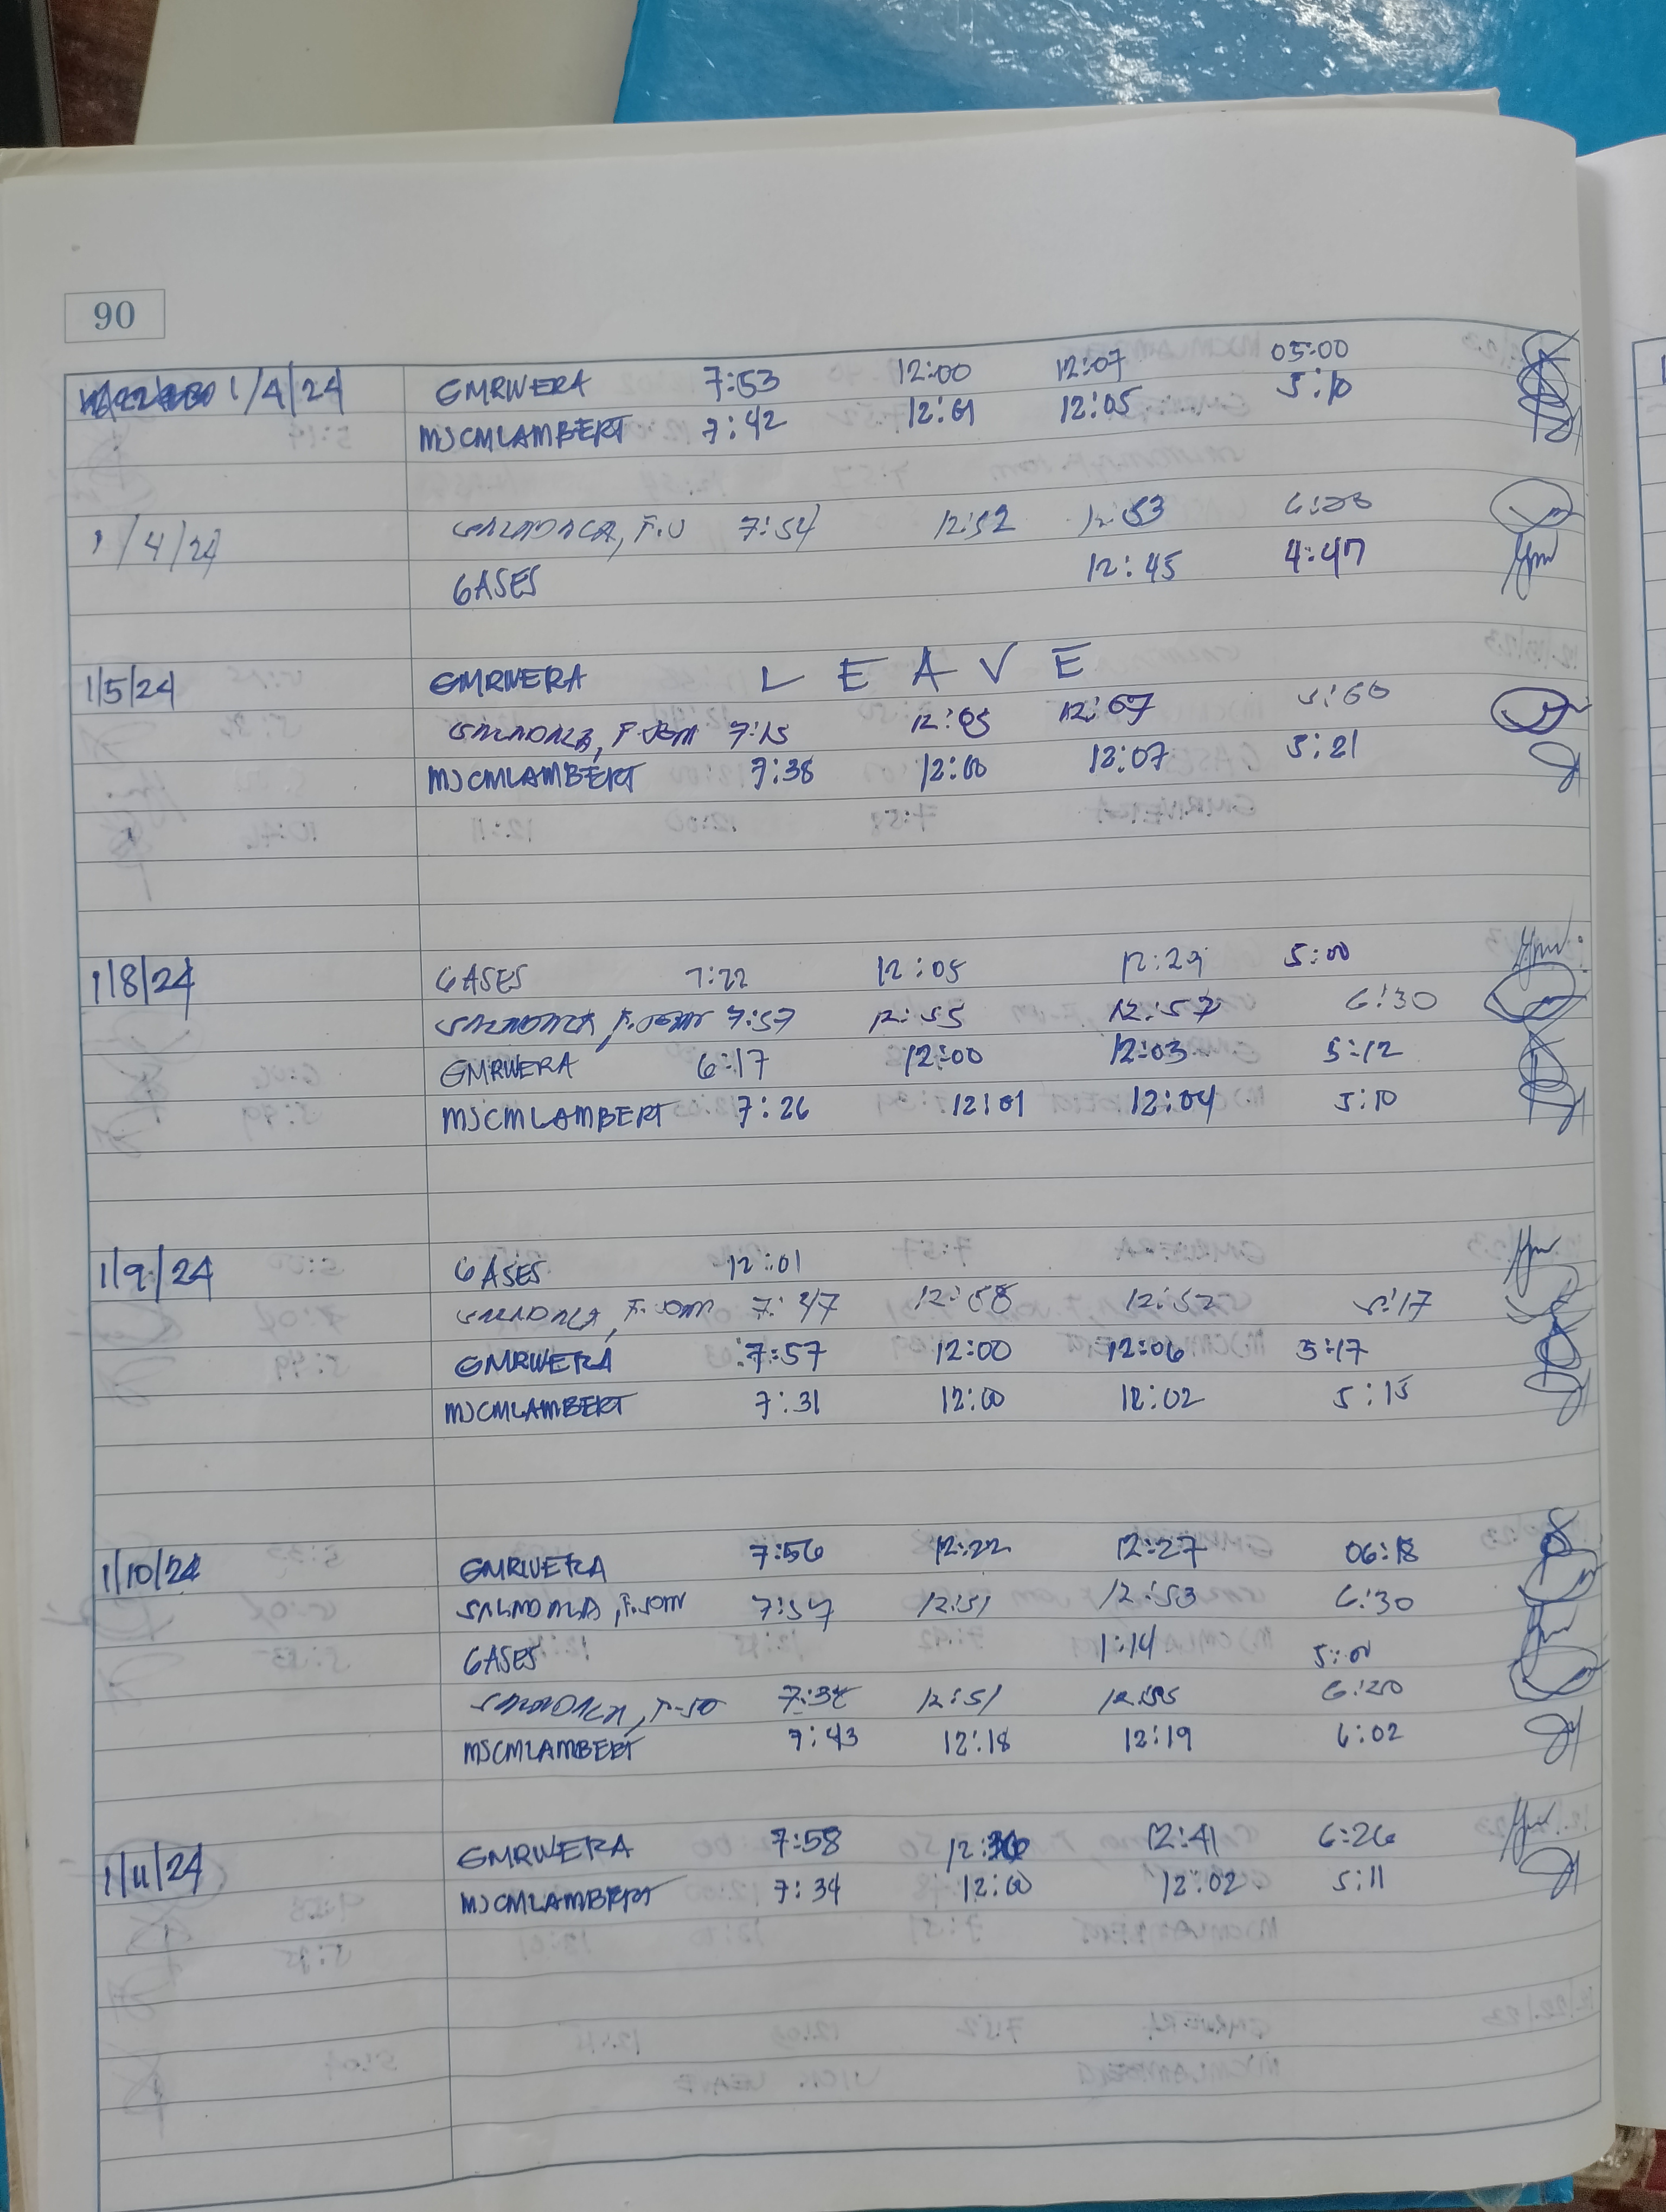 90
1/4/24 GMRIVERA 7:53 12:00 12:07 05:00
MJCMLAMBERT 7:42 12:01 12:05 5:10
1/4/24 7:54 12:52 12:53
GASES 12:45 4:47
1/5/24 GMRIVERA LEAVE
7:15 12:05 12:07
MJCMLAMBERT 7:38 12:00 12:07 5:21
1/8/24 GASES 7:22 12:05 12:29 5:00
7:57 12:55 12:57 6:30
GMRIVERA 6:17 12:00 12:03 5:12
MJCMLAMBERT 7:26 12:01 12:04 5:10
1/9/24 GASES 12:01
7:47 12:58 12:52 5:17
GMRIVERA 7:57 12:00 12:06 5:17
MJCMLAMBERT 7:31 12:00 12:02 5:15
1/10/24 GMRIVERA 7:56 12:22 12:27 06:18
7:57 12:51 12:53 6:30
GASES 1:14 5:01
12:51
MJCMLAMBERT 7:43 12:18 12:19 6:02
1/11/24 GMRIVERA 7:58 12:41 6:26
MJCMLAMBERT 7:34 12:00 12:02 5:11